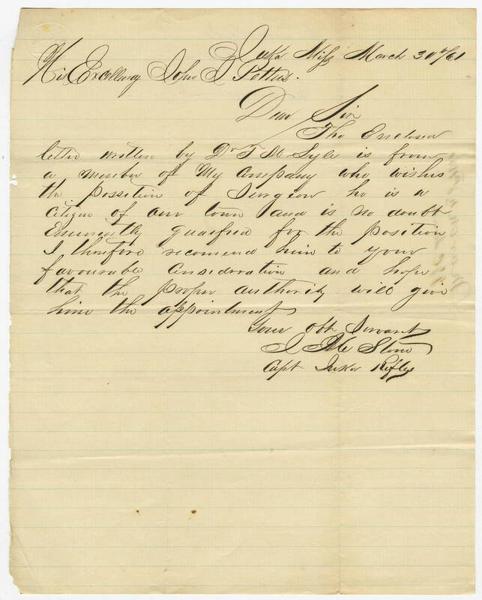 Iuka Miss March 30th/61
His Excellency John J Pettus.
Dear Sir
The Enclosed
letter written by Dr T M Lyle is from
a member of My Company who wishes
the possition of Surgeon he is a
citizen of our town and is no doubt
Eminently qualified for the position
I therefore recomend him to your
favourable Consideration and hope
that the proper authority will give
him the appointment
Your obt Servant
Stone
Capt Iuka Rifles